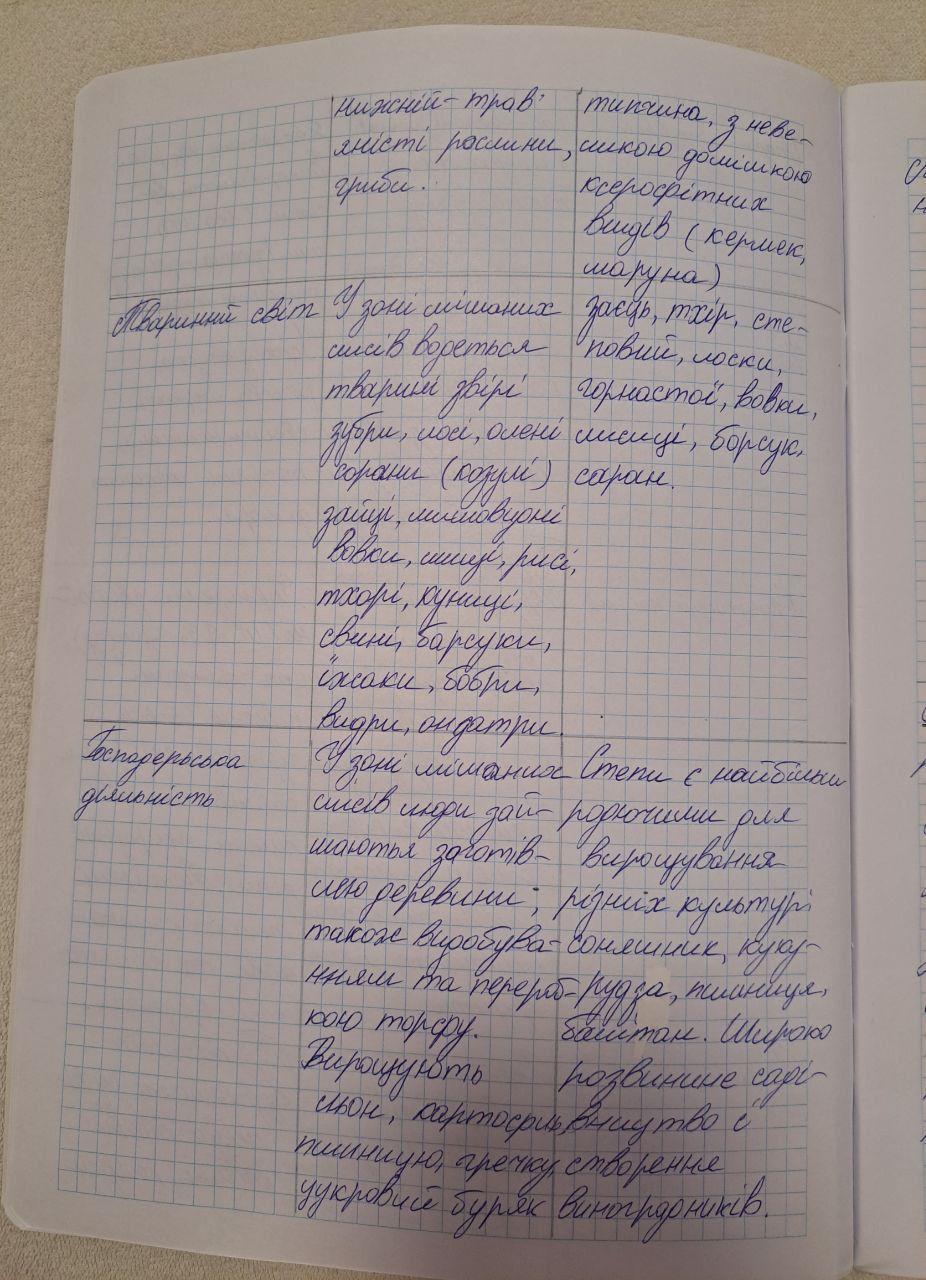 нижній - трав'
яністі рослини,
гриби.
типчина, з неве-
ликою домішкою
ксерофітних
видів (кермек,
маруна)
Тваринний світ
У зоні мішаних
лісів водеться
тварині звірі
зубри, лосі, олені
сорани (козулі)
зайці, мишовидні
вовки, лисиці, рисі,
тхорі, куниці,
свині, барсуки,
їжаки, бобри,
видри, ондатри.
заєць, тхір, сте-
повий, лоски,
горностої, вовки,
лисиці, борсук,
саран.
Господерьська
діяльність
У зоні мішаних
лісів люди зай-
маються заготів-
лею деревини,
також видобува-
нням та перероб-
кою торфу.
Вирощують
льон, картоплю,
пшеницю, гречку,
цукровий буряк
Степи є найбільш
родючими для
вирощування
різних культур:
соняшник, куку-
рудза, пшениця,
баштан. Широко
розвинине саді-
вництво і
створення
виногрдоників.